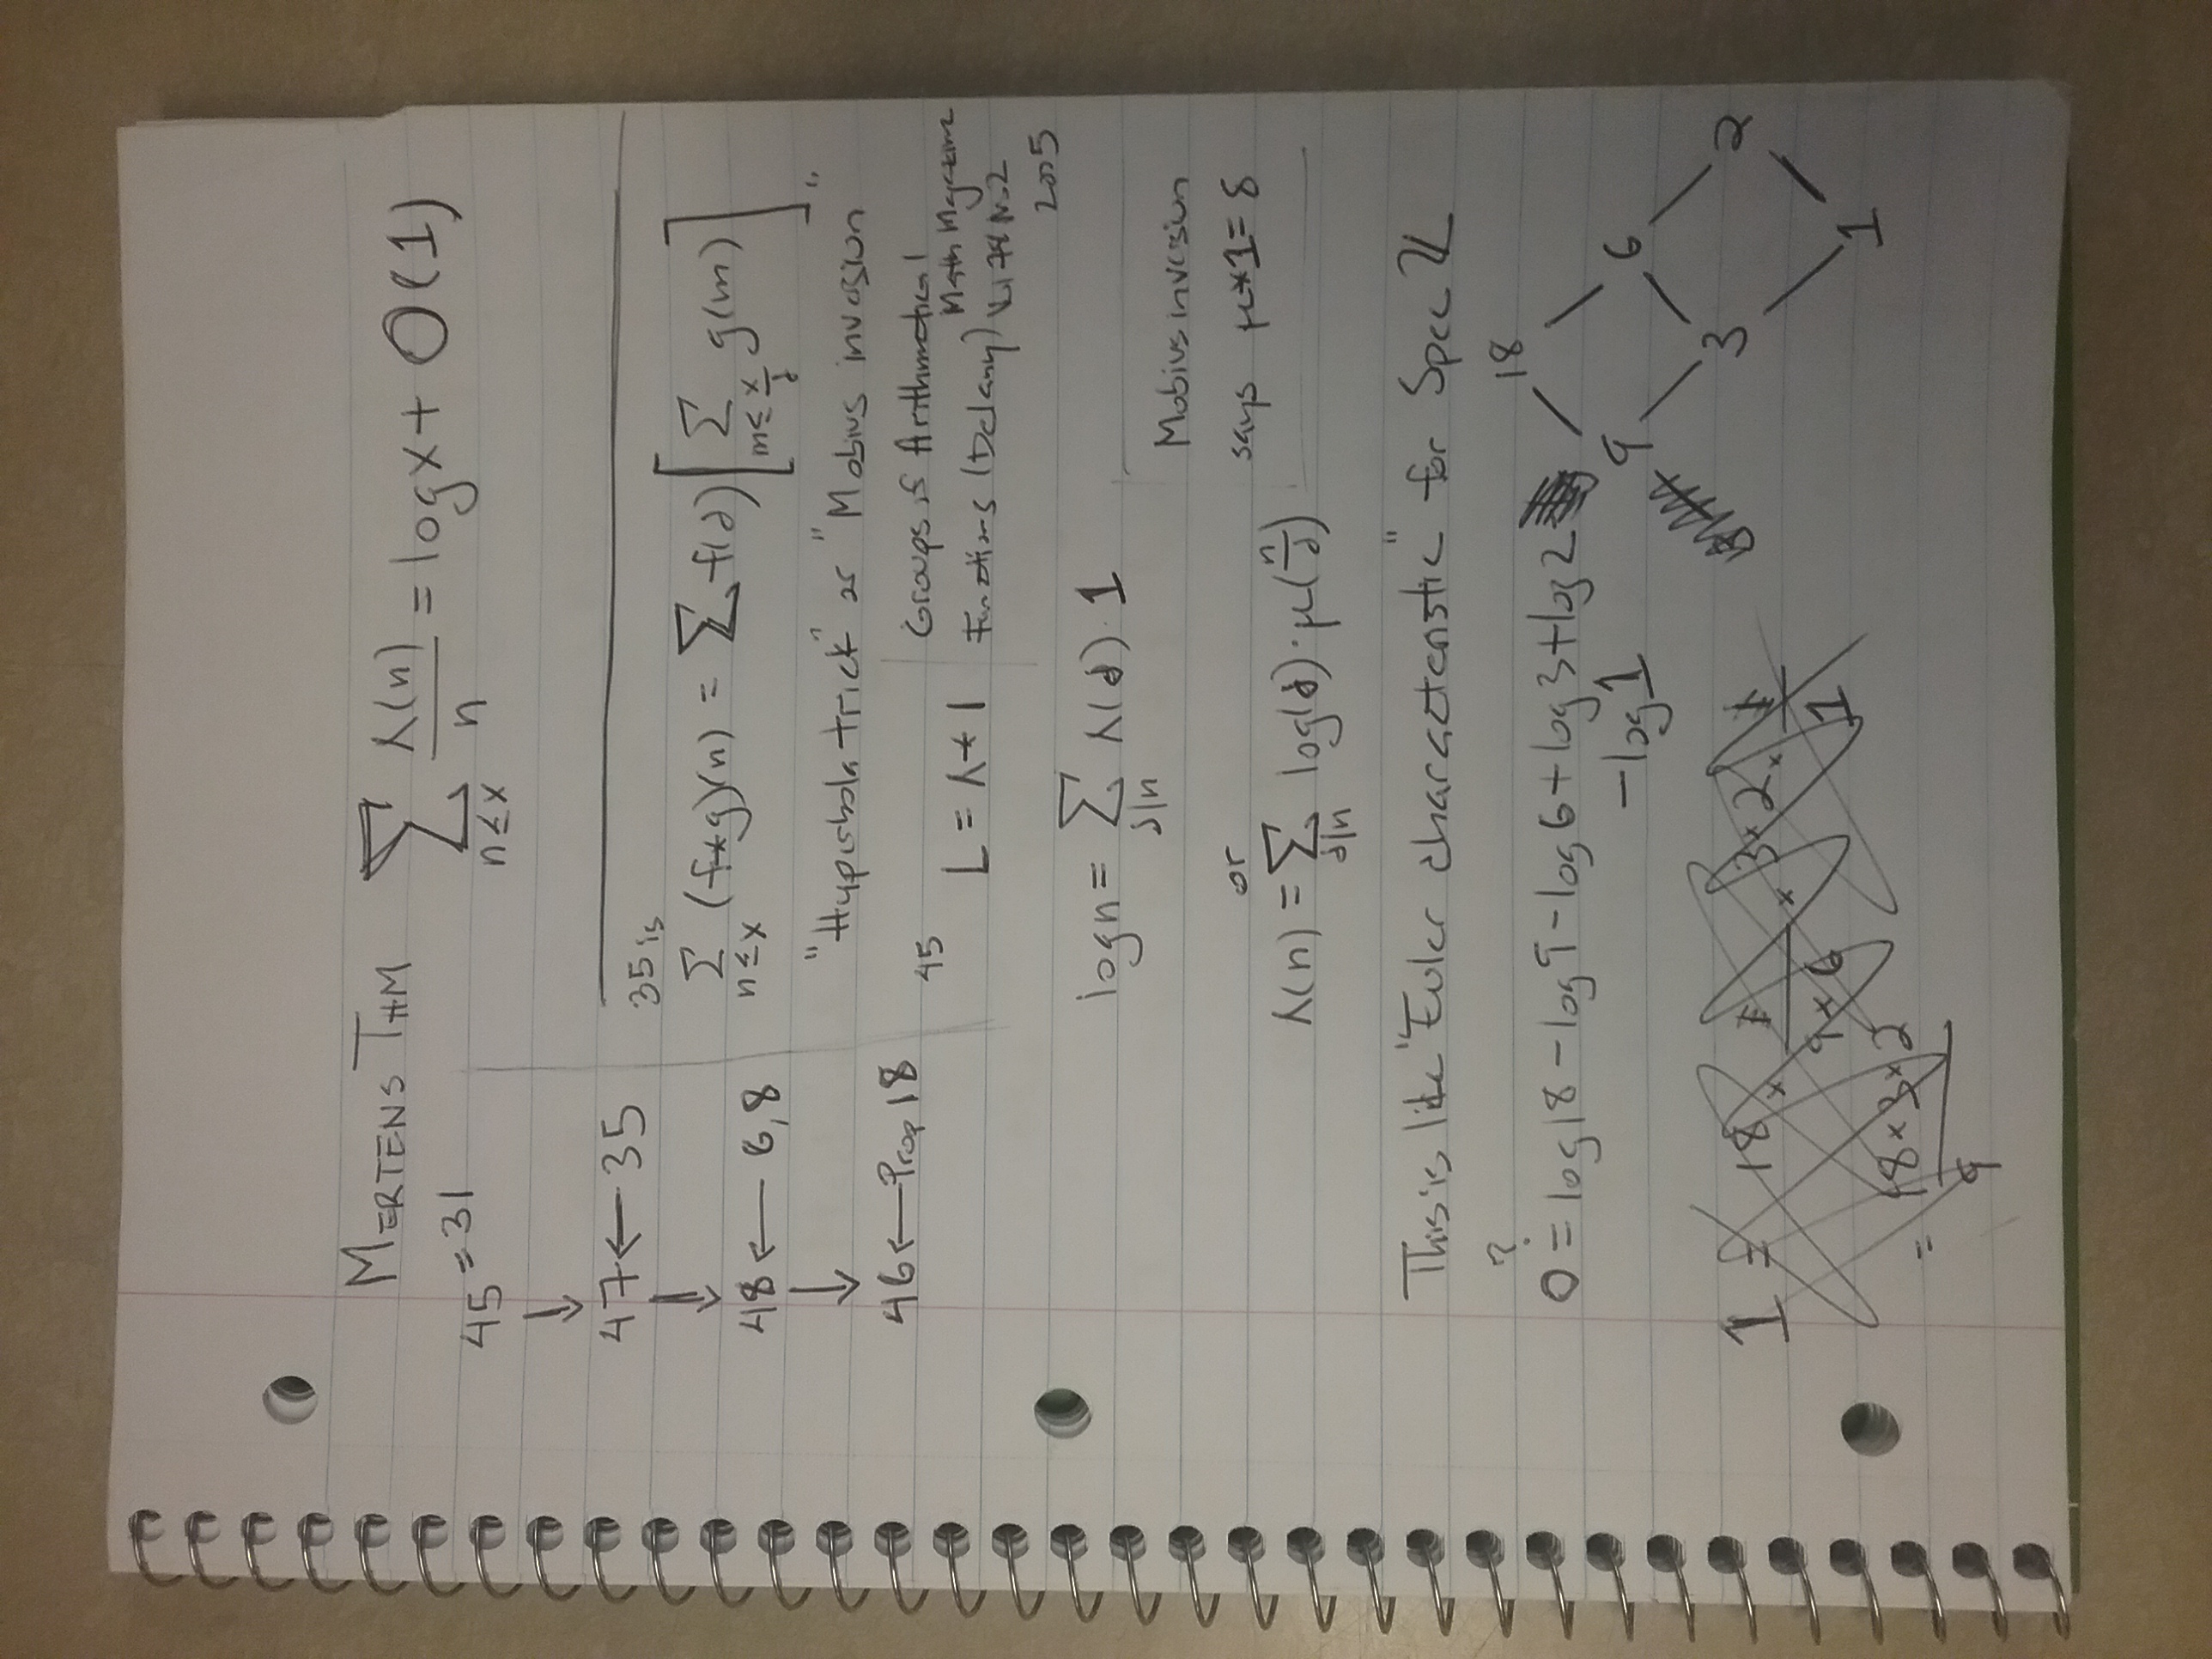 MERTENS THM
∑ Λ(n)/n = log x + O(1)
n≤x
45 = 31
↓
47 ← 35
↓
48 ← 6,8
↓
46 ← Prop 18
35 is
∑ (f*g)(n) = ∑ f(d) [ ∑ g(m) ]
n≤x m≤ x/d
"Hyperbola trick" or "Mobius inversion"
45
L = Λ * 1
Groups of Arithmetical
Functions (Delany) Math Magazine
Vol 78 No. 2
2005
log n = ∑ Λ(d) · 1
d|n
Mobius inversion
says μ*1 = δ
or
Λ(n) = ∑ log(d) · μ(n/d)
d|n
This is like "Euler characteristic" for Spec ℤ
?
0 = log 18 − log 9 − log 6 + log 3 + log 2
− log 1
18
9 6
3 2
1
1 = 18 × 1/(9 × 6) × 3 × 2 × 1/1
= 18 × 3 × 2
9